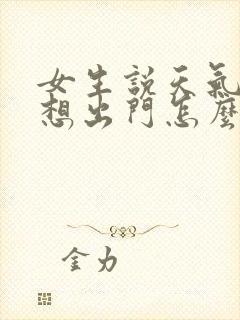 女生説天氣
想出門怎麼
金力